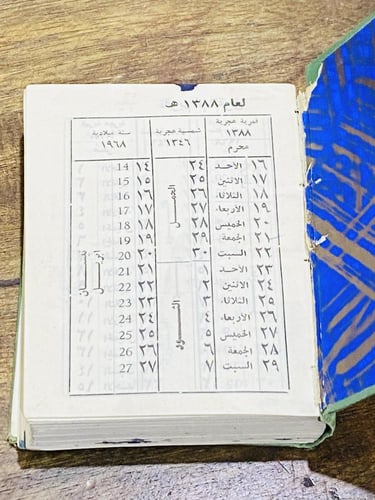 لعام ١٣٨٨ هـ
قمرية هجرية شمسية هجرية سنة ميلادية
١٣٨٨ ١٣٤٦ ١٩٦٨
محرم
١٦ الأحد ٢٤ ١٤ 14
١٧ الاثنين ٢٥ ١٥ 15
١٨ الثلاثاء ٢٦ ١٦ 16
١٩ الأربعاء ٢٧ ١٧ 17
٢٠ الخميس ٢٨ ١٨ 18
٢١ الجمعة ٢٩ ١٩ 19
٢٢ السبت ٣٠ ٢٠ 20
٢٣ الأحد ١ ٢١ 21
٢٤ الاثنين ٢ ٢٢ 22
٢٥ الثلاثاء ٣ ٢٣ 23
٢٦ الأربعاء ٤ ٢٤ 24
٢٧ الخميس ٥ ٢٥ 25
٢٨ الجمعة ٦ ٢٦ 26
٢٩ السبت ٧ ٢٧ 27
الحمل
الثور
نيسان
ابريل